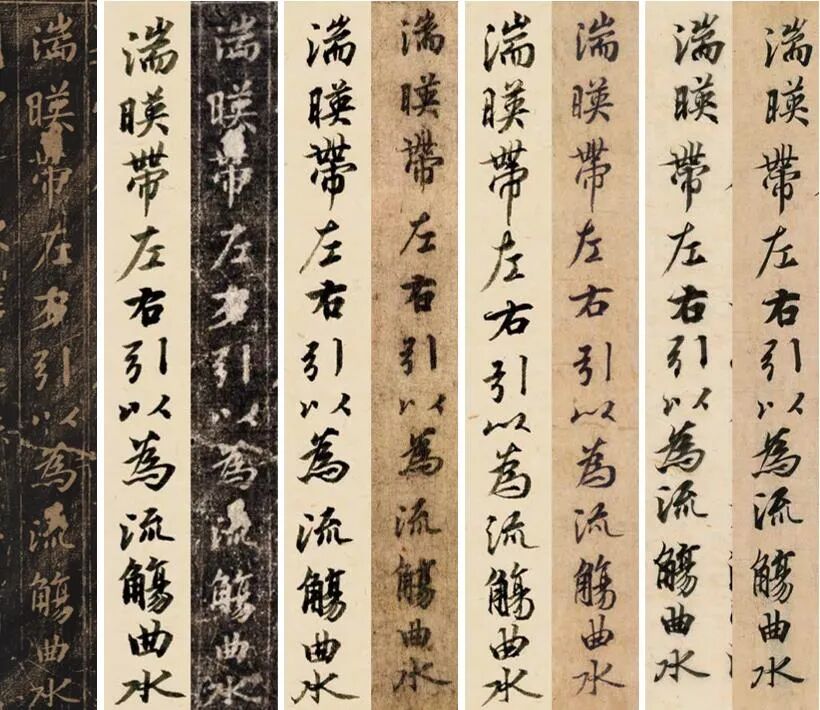 湍暎帶左右引以為流觴曲水
湍暎帶左右引以為流觴曲水
湍暎帶左右引以為流觴曲水
湍暎帶左右引以為流觴曲水
湍暎帶左右引以為流觴曲水
湍暎帶左右引以為流觴曲水
湍暎帶左右引以為流觴曲水
湍暎帶左右引以為流觴曲水
湍暎帶左右引以為流觴曲水